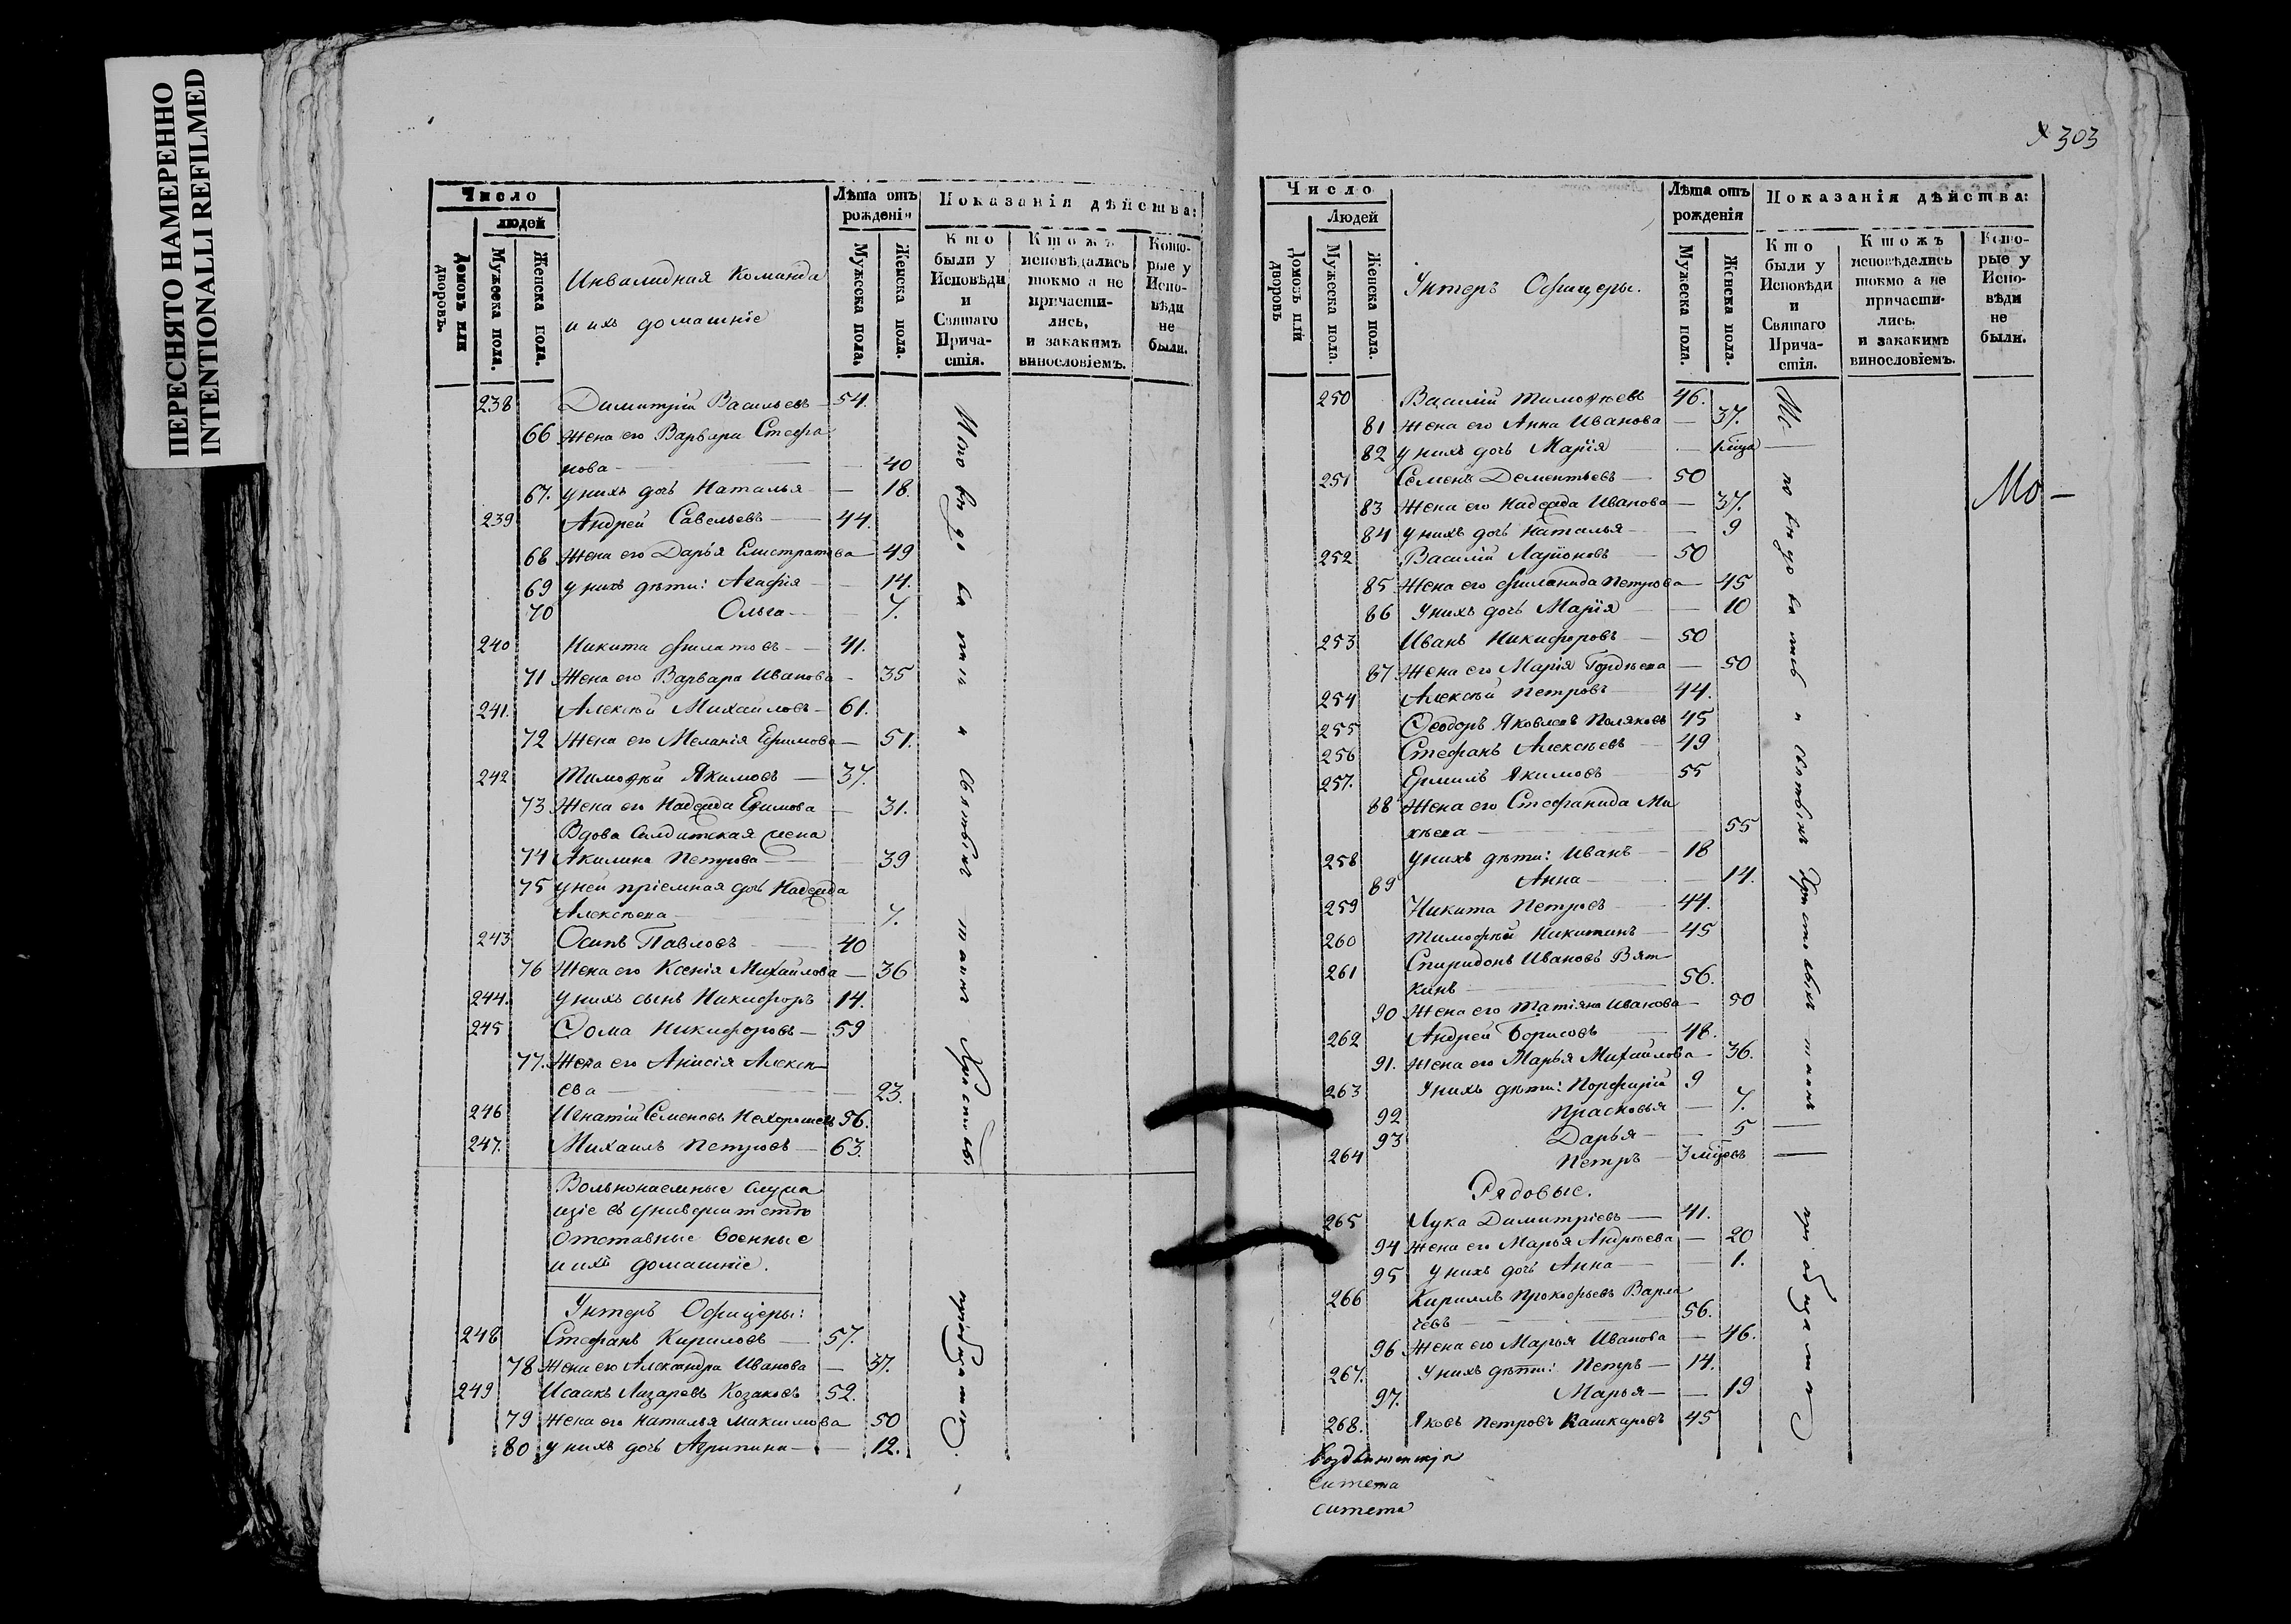 ПЕРЕСНЯТО НАМЕРЕННО
INTENTIONALLI REFILMED
Число
людей
Домовъ или дворовъ.
Мужеска пола.
Женска пола.
Инвалидная Команда
и ихъ домашніе
Лѣта отъ рожденія
Мужеска пола.
Женска пола.
Показанія дѣйства:
Кто были у Исповѣди и Святаго Причастія.
Ктожъ исповѣдались токмо а не причастились, и закакимъ винословіемъ.
Которые у Исповѣди не были.
238 Димитрій Васильевъ 54.
66 Жена его Варвара Стефа
нова 40
67. у нихъ дочь Наталья 18.
239 Андрей Савельевъ 44.
68 Жена его Дарья Елистратова 49
69 у нихъ дѣти: Агафія 14.
70 Ольга 7.
240 Никита Филатовъ 41.
71 Жена его Варвара Иванова 35
241. Алексѣй Михайловъ 61.
72 Жена его Меланія Ефимова 51.
242 Тимоѳѣй Якимовъ 37.
73 Жена его Надежда Ефимова 31.
Вдова Салдатская жена
74 Акилина Петрова 39
75 у ней пріемная дочь Надежда
Алексѣева 7.
243 Осипъ Павловъ 40
76 Жена его Ксенія Михайлова 36
244. у нихъ сынъ Никифоръ 14.
245 Ѳома Никифоровъ 59
77. Жена его Анисія Алексѣ
ева 23.
246 Игнатій Семеновъ Нехорошевъ 56.
247. Михаилъ Петровъ 63.
Вольнонаемные служа
щіе въ Университетѣ
Отставные военные
и ихъ домашніе.
Унтеръ Офицеры:
248 Стефанъ Кириловъ 57.
78 Жена его Александра Иванова 37.
249 Исаакъ Лазаревъ Козаковъ 52.
79 Жена его Наталья Максимова 50
80 у нихъ дочь Агрипина 12.
303
Число
Людей
Домовъ или дворовъ
Мужеска пола.
Женска пола.
Унтеръ Офицеры.
Лѣта отъ рожденія
Мужеска пола.
Женска пола.
Показанія дѣйства:
Кто были у Исповѣди и Святаго Причастія.
Ктожъ исповѣдались токмо а не причастились. и закакимъ винословіемъ.
Которые у Исповѣди не были.
250 Василій Тимоѳѣевъ 46.
81 Жена его Анна Иванова 37.
82 у нихъ дочь Марія
251 Семенъ Дементьевъ 50
83 Жена его Надежда Иванова 37.
84 у нихъ дочь Наталья 9
252 Василій Ларіоновъ 50
85 Жена его Филанида Петрова 45
86 У нихъ дочь Марія 10
253 Иванъ Никифоровъ 50
87 Жена его Марія Гордѣева 50
254 Алексѣй Петровъ 44.
255 Ѳеодоръ Яковлевъ Поляковъ 45
256 Стефанъ Алексѣевъ 49
257. Ермилъ Якимовъ 55
88 Жена его Стефанида Ми
хѣева 55
258 У нихъ дѣти: Иванъ 18
89 Анна 14.
259 Никита Петровъ 44.
260 Тимофѣй Никитинъ 45
261 Спиридонъ Ивановъ Вят
кинъ 56.
90 Жена его Татіяна Иванова 50
262 Андрей Борисовъ 48.
91. Жена его Марья Михайлова 36.
263 У нихъ дѣти: Порфирій 9
92 Прасковья 7.
93 Дарья 5
264 Петръ 3 мѣцовъ
Рядовые.
265 Лука Димитріевъ 41.
94 Жена его Марья Андрѣева 20
95 у нихъ дочь Анна 1.
266 Кириллъ Прокофьевъ Варла
чевъ 56.
96 Жена его Марья Иванова 46.
267. У нихъ дѣти: Петръ 14.
97. Марья 19
268. Яковъ Петровъ Кашкаровъ 45